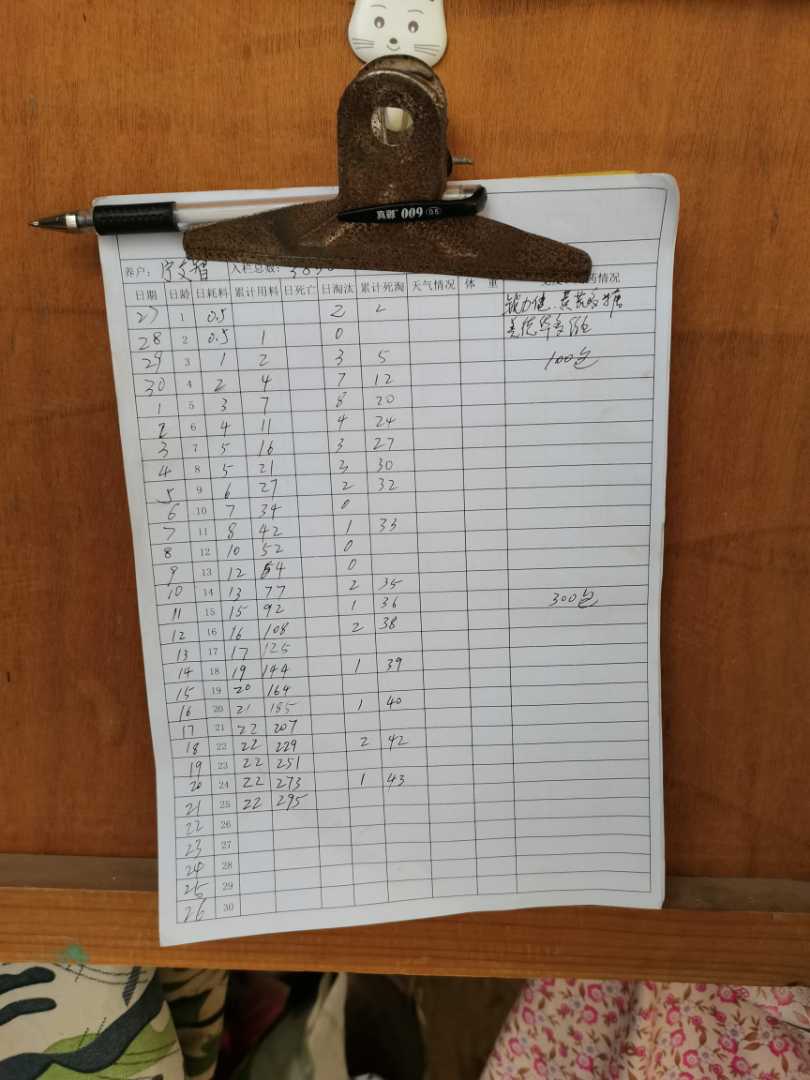 真彩 009 0.5
养户: 入栏总数:
日期 日龄 日耗料 累计用料 日死亡 日淘汰 累计死淘 天气情况 体 重 药情况
27 1 0.5 2 2
28 2 0.5 1 0
29 3 1 2 3 5 100包
30 4 2 4 7 12
1 5 3 7 8 20
2 6 4 11 4 24
3 7 5 16 3 27
4 8 5 21 3 30
5 9 6 27 2 32
6 10 7 34 0
7 11 8 42 1 33
8 12 10 52 0
9 13 12 64 0
10 14 13 77 2 35
11 15 15 92 1 36 300包
12 16 16 108 2 38
13 17 17 125
14 18 19 144 1 39
15 19 20 164
16 20 21 185 1 40
17 21 22 207
18 22 22 229 2 42
19 23 22 251
20 24 22 273 1 43
21 25 22 295
22 26
23 27
24 28
25 29
26 30